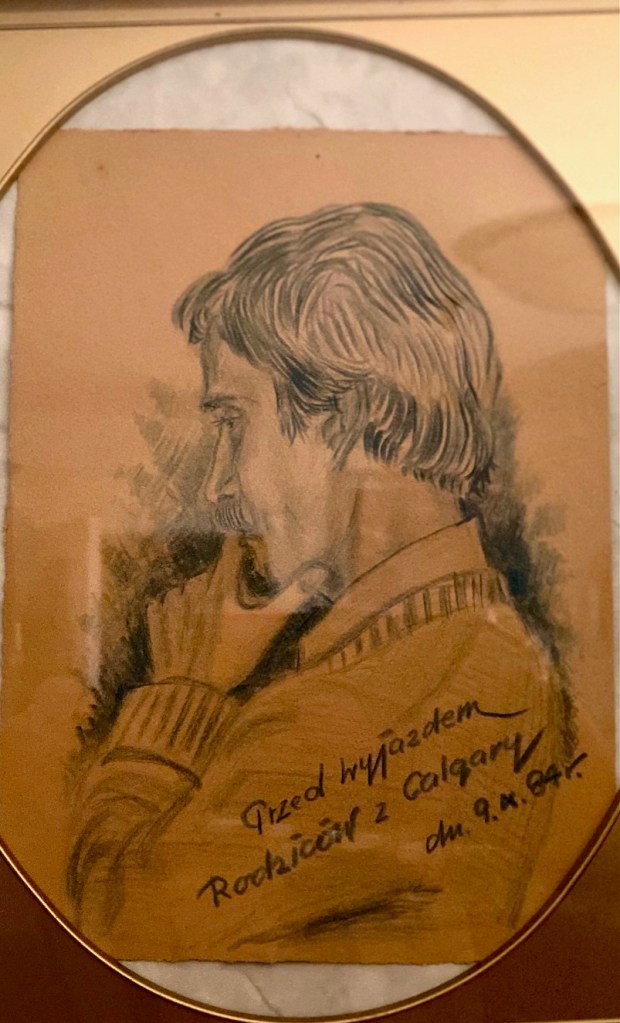 Przed wyjazdem
Rodziców z Calgary
dn. 9.IX.84r.